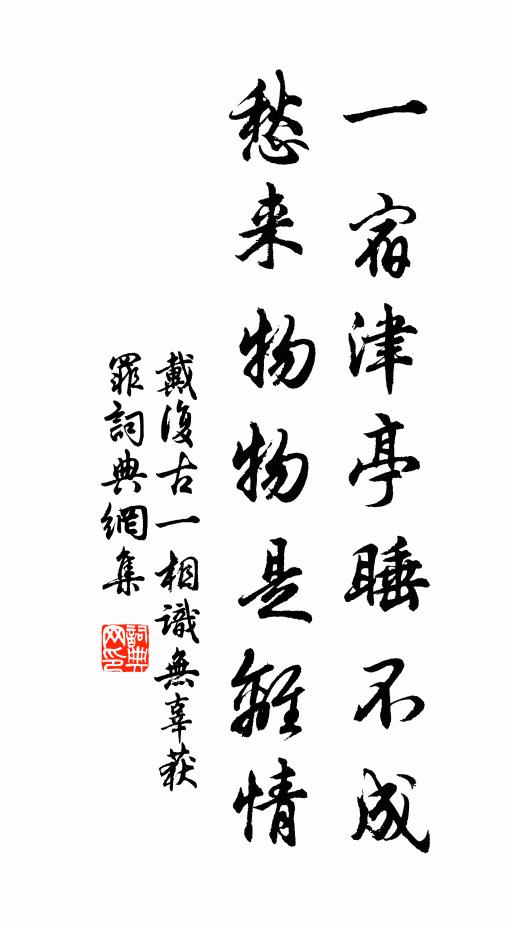 一宿津亭睡不成
愁来物物是離情
戴復古一相識無辜获
罪詞典網集
詞典网印